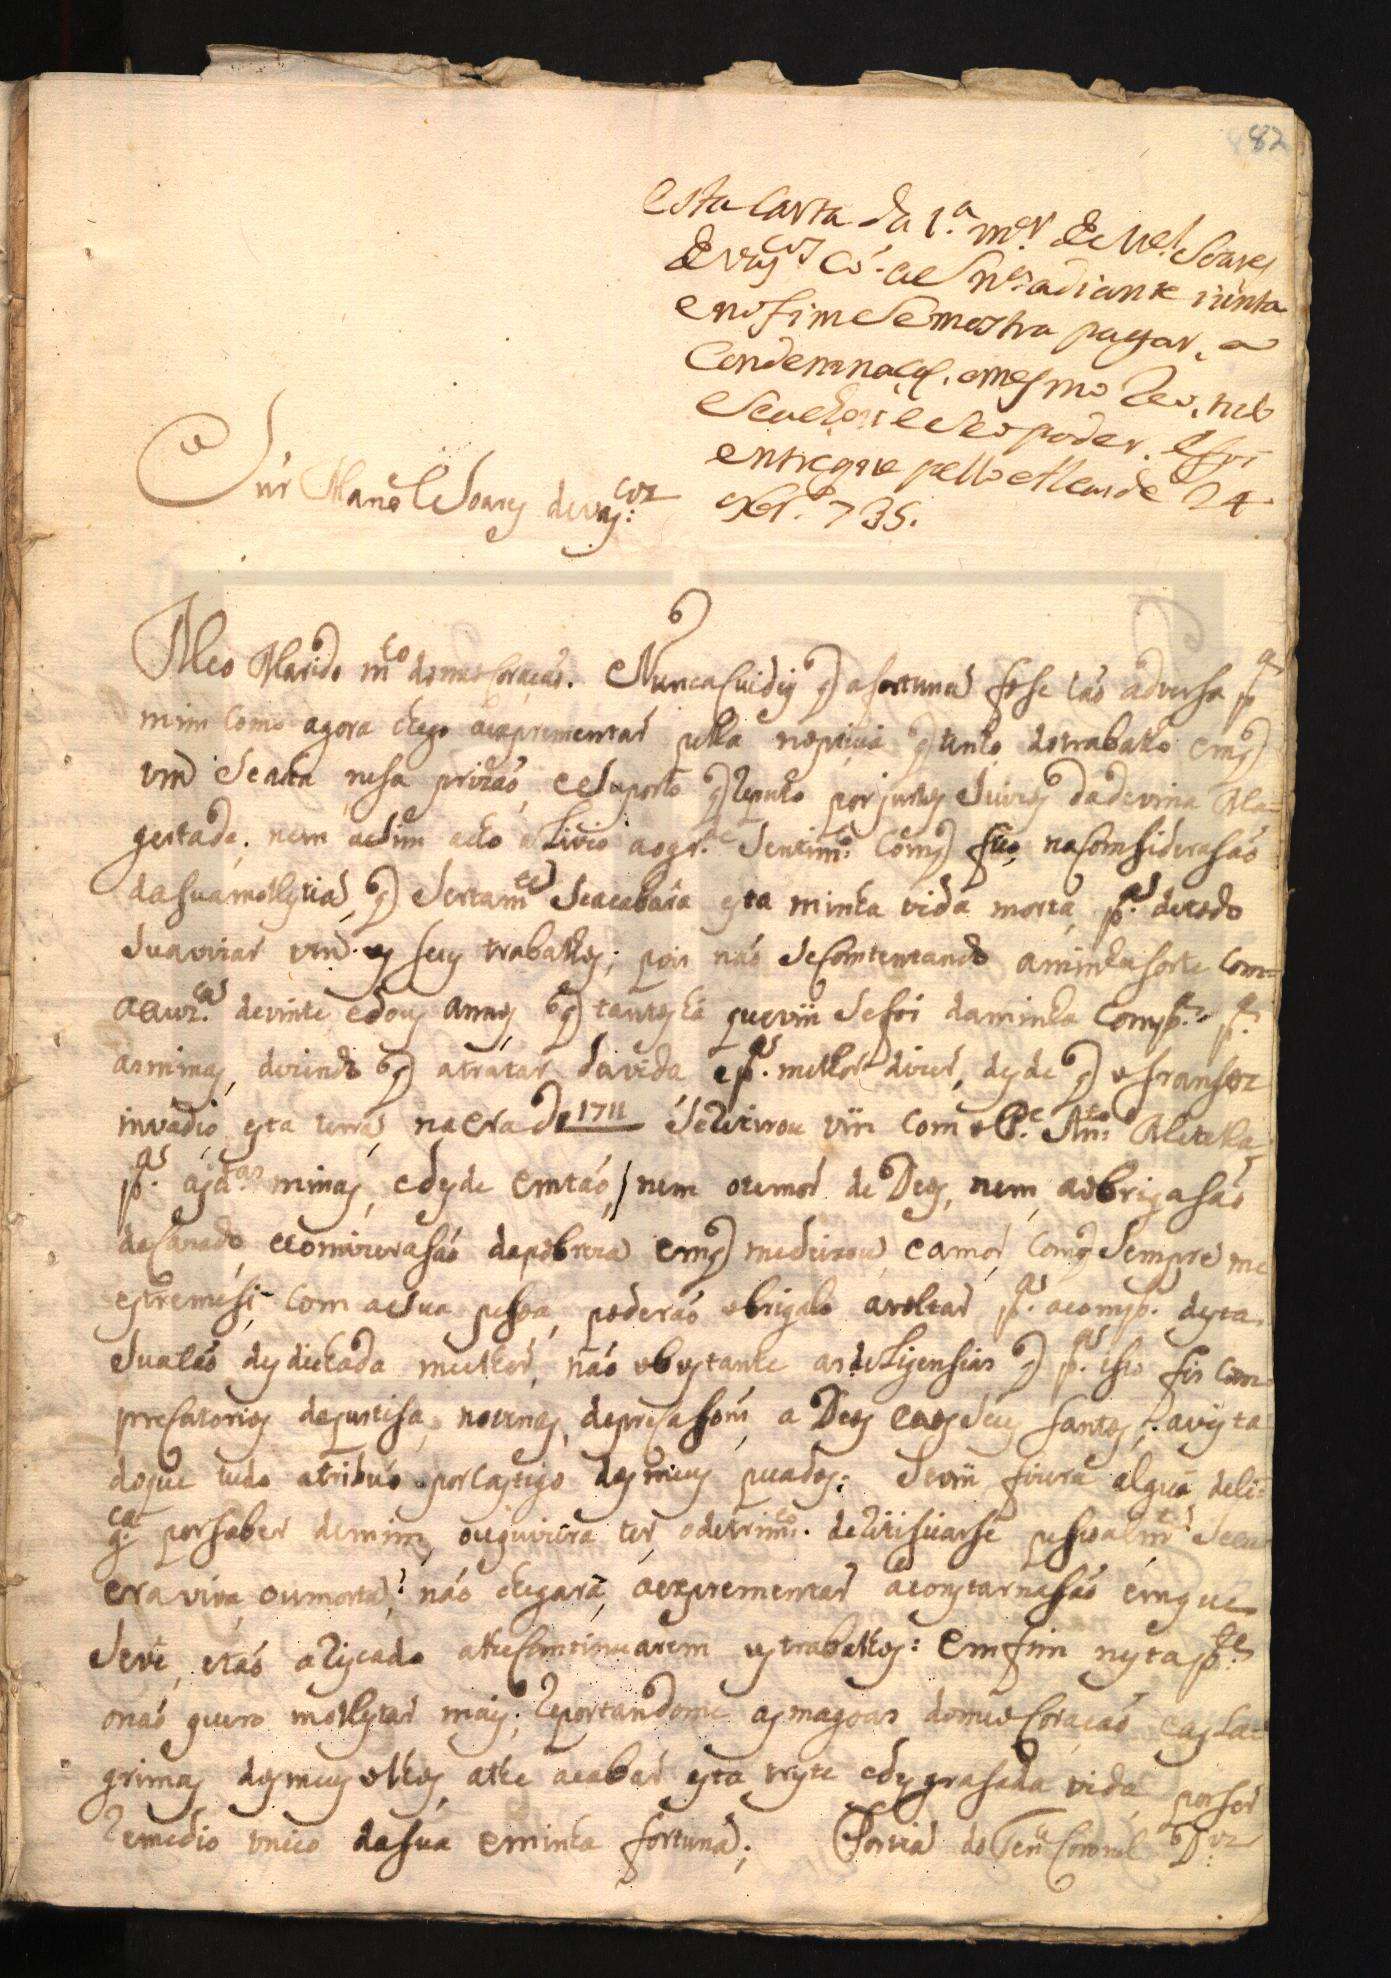 82
esta carta da 1.ª m.er de M.el Soares
de vas.cos Có. a Sn.ca adiante iunta
e no fim se mostra pagar, a
Condennaçaõ. o mesmo Reo, no
e Seu poder. e foi
entregue pello Alcaide 24
Xbr.º 735.
Snr Manoel Soares de vas.coz
Meo Marido m.to do meo Coraçaõ. Nunca Cuidey q a fortuna fose taõ adversa p.ª
mim Como agora chego a exprementar pella noticia q tenho do trabalho em q
vm Se acha nesa prizaõ, e Suposto q Reputo por justos Juizos da devina Ma=
gestade, nem aSim acho alivio ao gr.de Sentim.to Com q fico, na Comsiderasaõ
da sua molestia, q Sertam.te Se acabára esta minha vida morta, p.ª de todo
Suavizar vm os seus trabalhos; pois naõ Se Comtentando a minha sorte Com=
a auz.ca de vinte e dous annos, q tantos há que vm Se foi da minha Comp.ª p.ª
as minas, dizendo q a tratar da vida e p.ª melhor dizer, desde q o franses
invadio esta terra, na era de 1711 Se Retirou vm com o P.e An.to
p.ª as d.as minas, e desde emtaõ, nem o temor de Deos, nem a obrigasaõ
de Cazado, e Comizerasaõ da pobreza em q me deixou, e amor Com q Sempre me
estremesi, Com a Sua pesoa, poderaõ obrigalo a voltar p.ª a comp.ª desta
Sua taõ desdichada mulher, naõ obstante as deligensias q p.ª iso fis Com
precatorios de justisa, novenas, depreCasoins, a Deos e aos Seus santos, a vista
do que tudo atribuo por Castigo dos meus pecados; Se vm fizera algua deli=
g.ca por saber de mim, ou quizera ter, o detrim.to de Retifiuarse pesoalm.te Se eu
era viva, ou morta, naõ chegará, a exprementar a Constarnasaõ em que
Se vé, e taõ aRiscado a lhe Continuarem os trabalhos: Em fim nesta p.te
o naõ quero molestar mais, Reportandome as magoas do meo Coraçaõ, e as La=
grimas dos meus olhos, athe acabar esta triste e desgrasada vida, por ser
Remedio vnico da sua e minha fortuna; Portia do Ten.te Coronel D.os